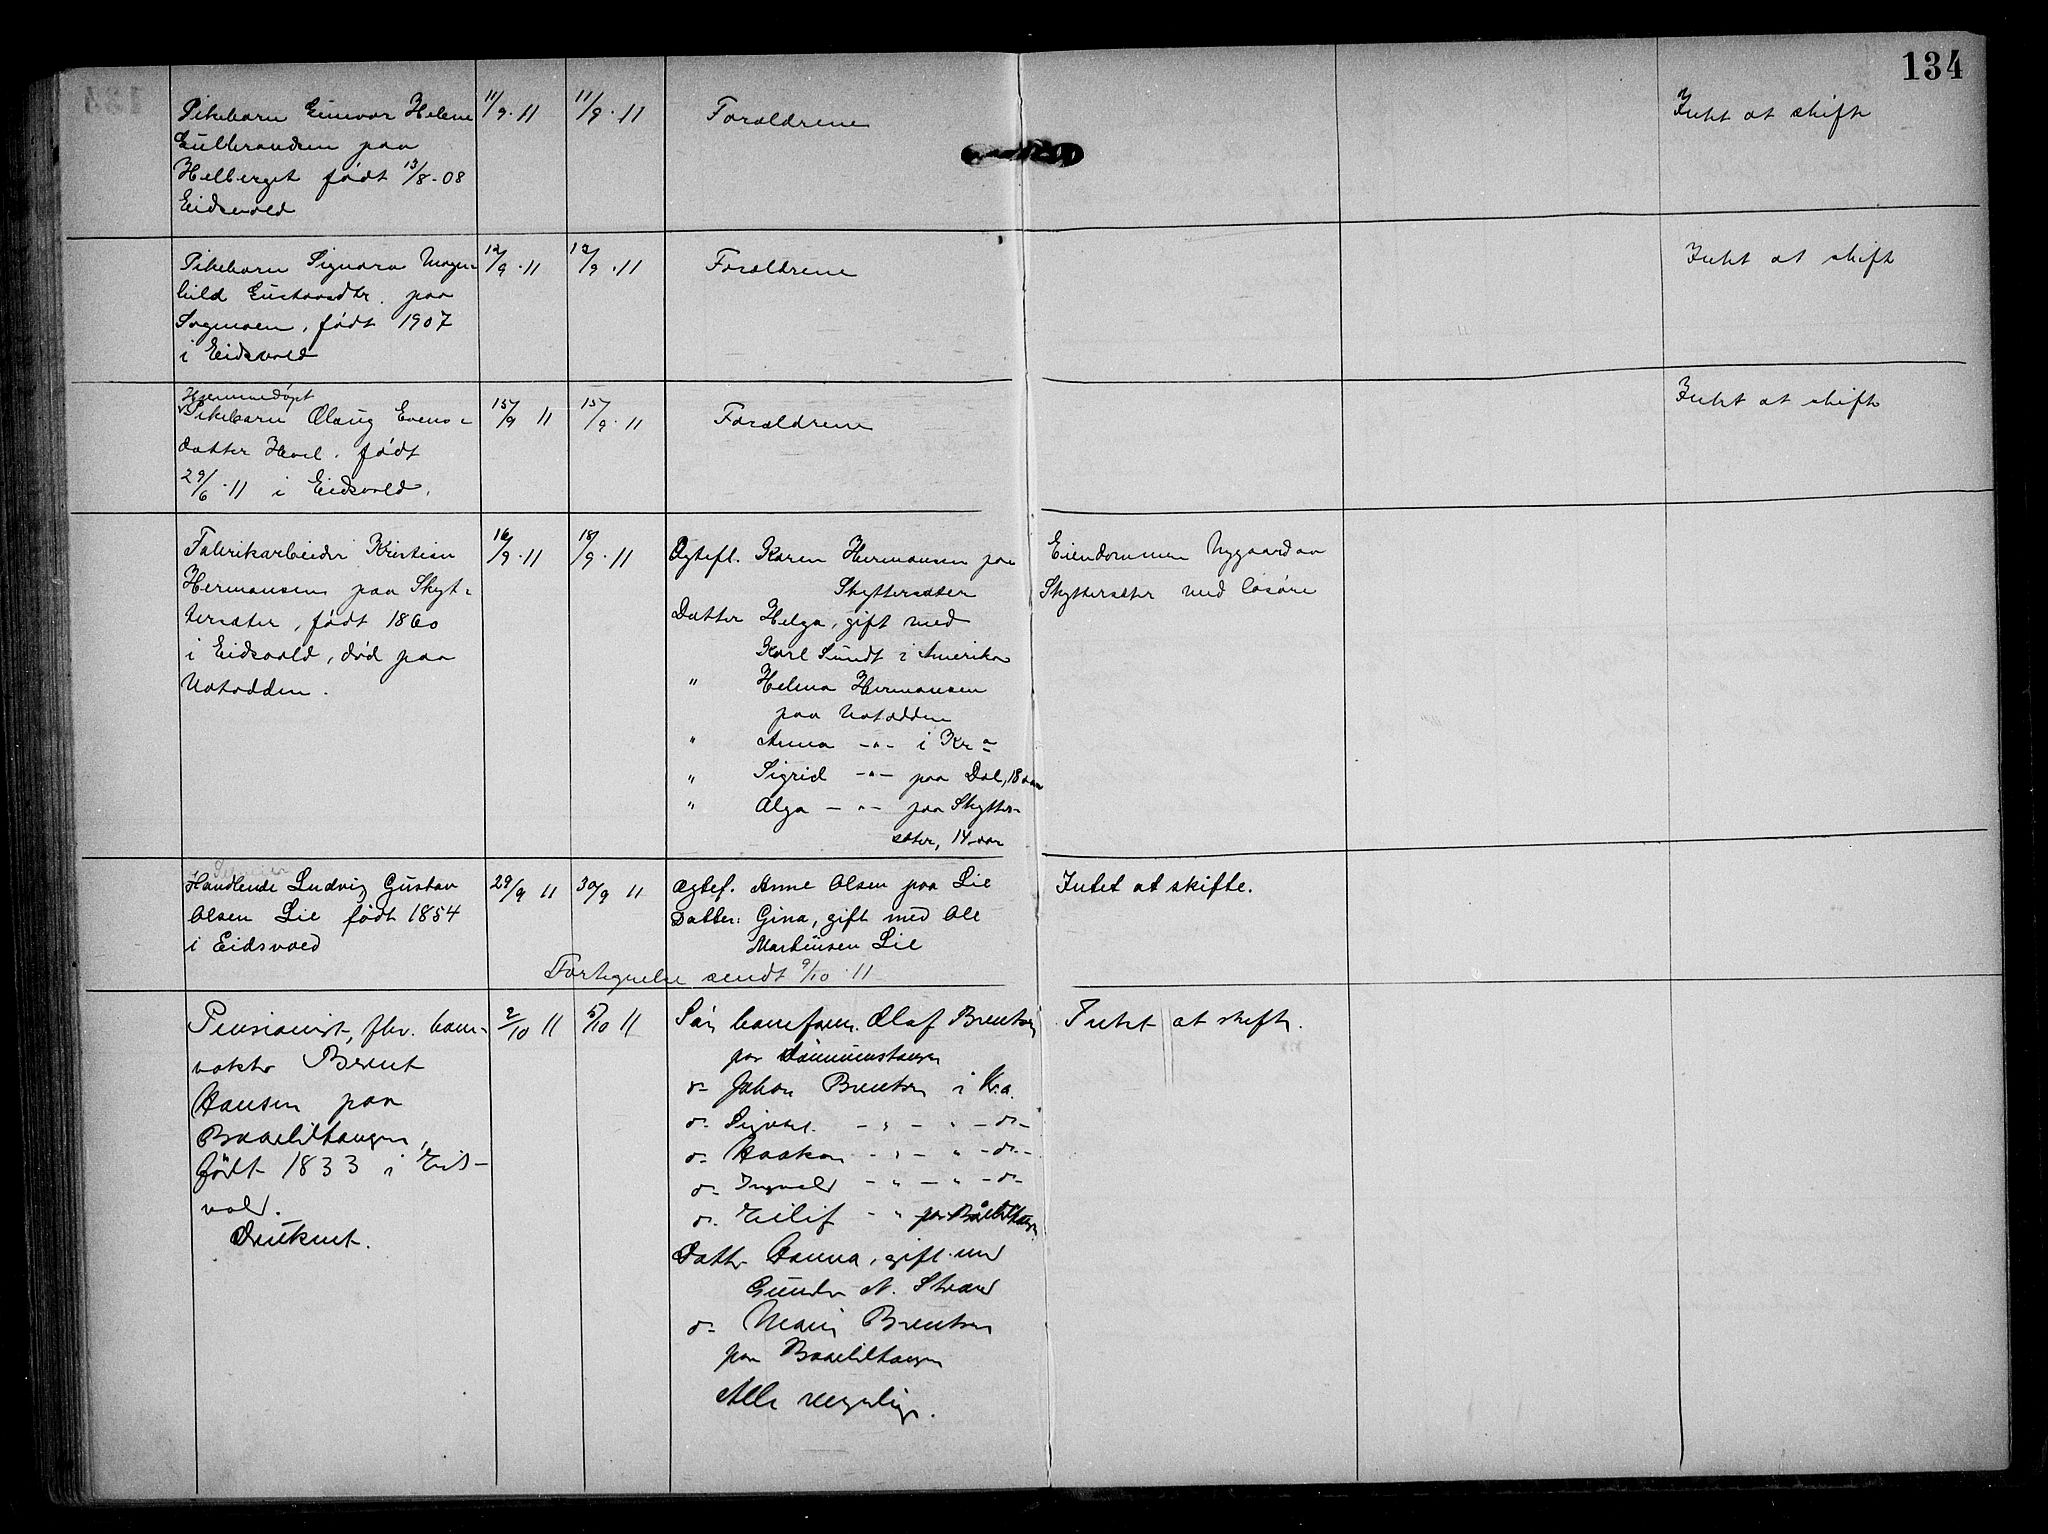 134
Pikebarn Gunvor Helene
Gulbrandsen paa
Helberget født 13/8-08
Eidsvold
11/9·11
11/9·11
Forældrene
Intet at skifte
Pikebarn Signora Magn-
hild Gustavsdtr. paa
Sogmoen, født 1907
i Eidsvold
12/9·11
12/9·11
Forældrene
Intet at skifte
Hjemmedøpt
Pikebarn Olaug Evens-
datter Hovl. født
29/6·11 i Eidsvold.
15/9 11
15/9·11
Forældrene
Intet at skifte
Fabrikarbeider Kristian
Hermansen paa Skyt-
tersæter, født 1860
i Eidsvold, død paa
Notodden.
16/9·11
18/9·11
Ægtefl. Karen Hermansen paa
Skyttersæter
Datter Helga, gift med
Karl Sundt i Amerika
" Helma Hermansen
paa Notodden
" Anna -"- i Kra
" Sigrid -"- paa Dal, 18 aar
" Olga -"- paa Skytter-
sæter, 14 aar
Eiendommen Nygaard av
Skyttersæter med løsøre
Handlende Ludvig Gustav
Olsen Lie født 1854
i Eidsvold
29/9 11
30/9 11
Ægtef. Anne Olsen paa Lie
Datter: Gina, gift med Ole
Martinsen Lie
Intet at skifte.
Fortegnelse sendt 9/10·11
Pensionist, fhv. ban-
vokter Bernt
Hansen paa
Baaslihaugen,
født 1833 i Eids-
vold.
Enkemt.
2/10 11
5/10 11
Søn banefom. Olaf Berntsen
paa
do- Johan Berntsen i Kra.
do- Sigvart -"-"- do-
do- Haakon -"-"- do-
do- Ingvald -"-"- do-
do- Eilif -"- paa
Datter Hanna, gift med
Gunder N. Strand
do- Marie Berntsen
paa Baaslihaugen
Alle myndige.
Intet at skifte.